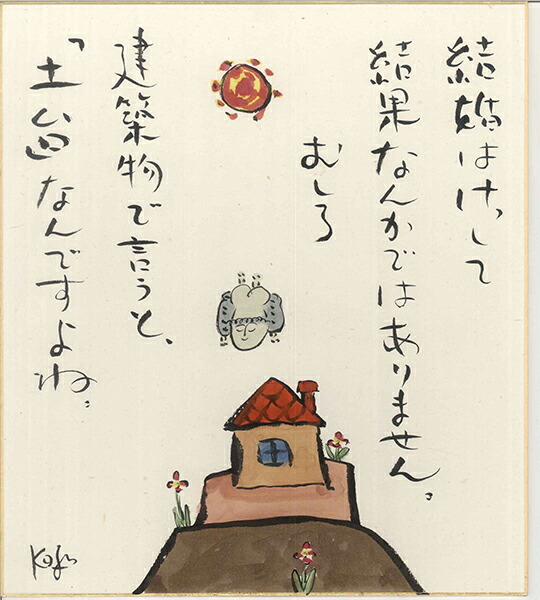 結婚はけっして
結果なんかではありません。
むしろ
建築物で言うと、
「土台なんですよね。